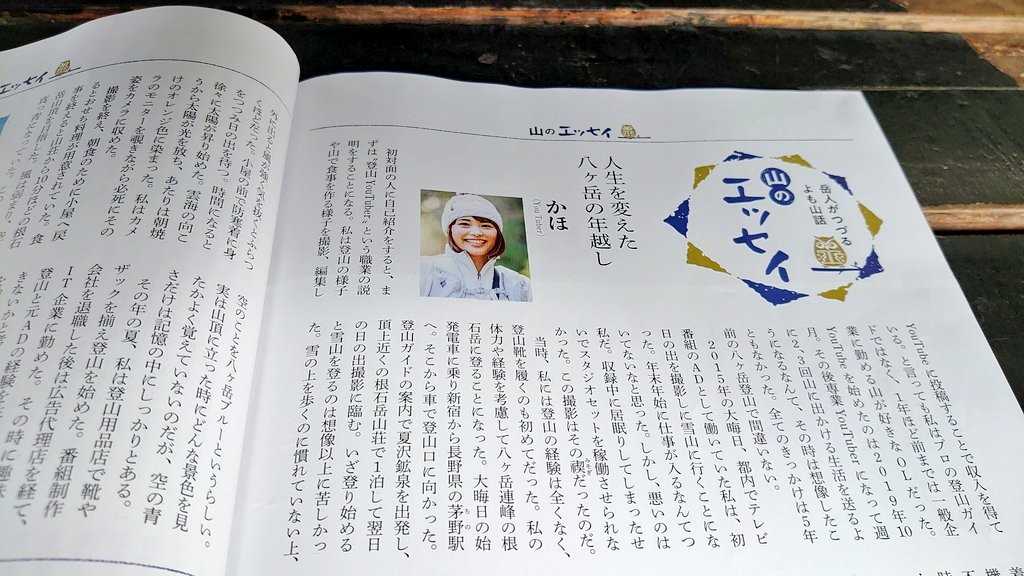 山のエッセイ
岳人がつづる
よも山話
山の
エッセイ
人生を変えた
八ヶ岳の年越し
かほ
(You Tuber)
初対面の人に自己紹介をすると、ま
ずは“登山YouTuber”という職業の説
明をすることになる。私は登山の様子
や山で食事を作る様子を撮影、編集し
YouTubeに投稿することで収入を得て
いる。と言っても私はプロの登山ガイ
ドではなく、1年ほど前までは一般企
業に勤める山が好きなOLだった。
YouTubeを始めたのは2019年10
月。その後専業YouTuberになって週
に2、3回山に出かける生活を送るよ
うになるなんて、その時は想像したこ
ともなかった。全てのきっかけは5年
前の八ヶ岳登山で間違いない。
2015年の大晦日、都内でテレビ
番組のADとして働いていた私は、初
日の出を撮影しに雪山に行くことにな
った。年末年始に仕事が入るなんてつ
いてないなと思った。しかし、悪いのは
私だ。収録中に居眠りしてしまったせ
いでスタジオセットを稼働させられな
かった。この撮影はその禊だったのだ。
当時、私には登山の経験は全くなく、
登山靴を履くのも初めてだった。私の
体力や経験を考慮して八ヶ岳連峰の根
石岳に登ることになった。大晦日の始
発電車に乗り新宿から長野県の茅野駅
ちの
へ。そこから車で登山口に向かった。
登山ガイドの案内で夏沢鉱泉を出発し、
頂上近くの根石岳山荘で1泊して翌日
の日の出撮影に臨む。いざ登り始める
と雪山を登るのは想像以上に苦しかっ
た。雪の上を歩くのに慣れていない上、
エッセイ
をつつみ日の出を待つ。時間になると
徐々に太陽が昇り始めた。雲海の向こ
うから太陽が光を放ち、あたりは朝焼
けのオレンジ色に染まった。私はカメ
ラのモニターを覗きながら必死にその
姿をカメラに収めた。
撮影を終え、朝食のために小屋へ戻
るとおせち料理が用意されていた。食
事を終えると山荘から10分ほどの根石
空のことを八ヶ岳ブルーというらしい。
実は山頂に立った時にどんな景色を見
たかよく覚えていないのだが、空の青
さだけは記憶の中にしっかりとある。
その年の夏、私は登山用品店で靴や
ザックを揃え登山を始めた。番組制作
会社を退職した後は広告代理店を経て、
IT企業に勤めた。その時に趣味